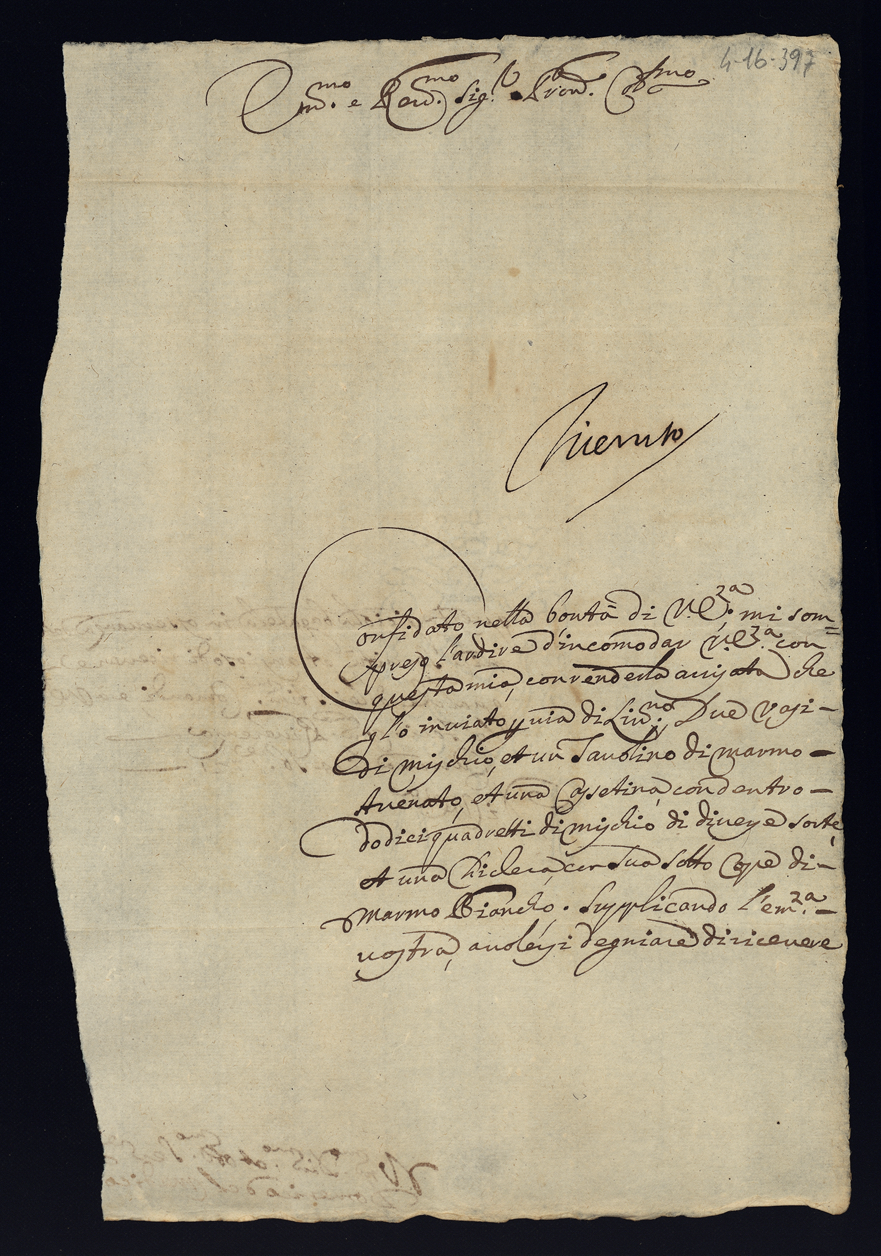 4-16-397
Em.mo e Rev.mo Sig.r Pron. Col.mo
Riceuuto
Confidato nella bontà di V. E.za mi som=
preso l'ardire d'incomodar V. E.za con
questa mia, con renderla auisata che
gl'ò inuiato p uia di Liu.no Due Vasi -
di mischio, et un Tauolino di marmo -
uenato, et una Casetina, con dentro -
dodici quadretti di mischio di diuerse sorte,
et una Chichera, con sua sotto Cope di -
Marmo Biancho. Supplicando l'em.za -
uostra, a uolersi degniare di riceuere